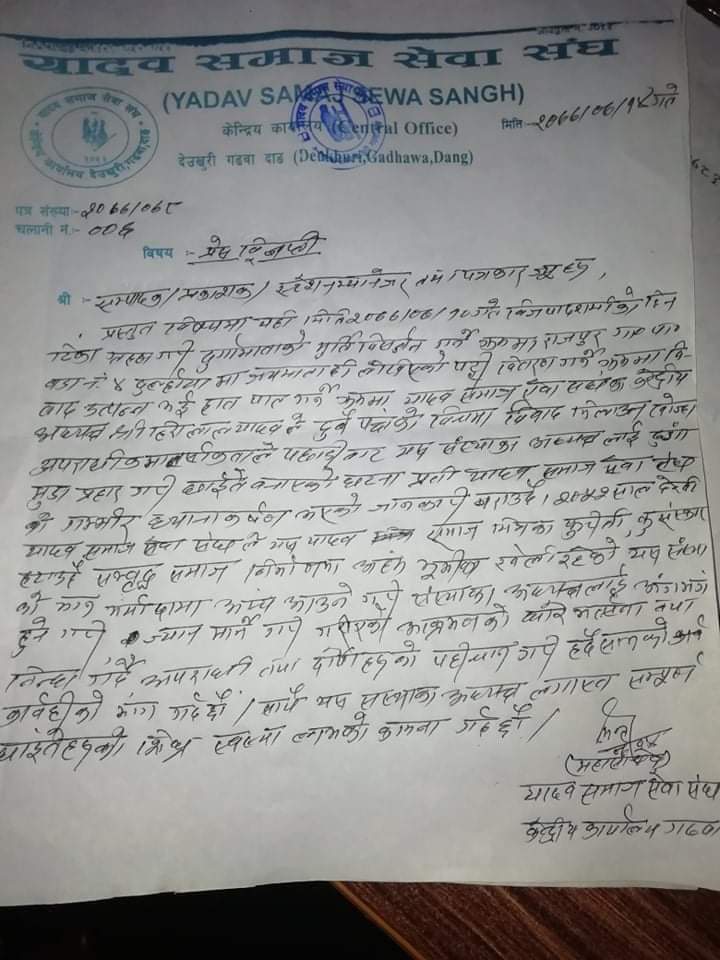 यादव समाज सेवा संघ
(YADAV SAMAJ SEWA SANGH)
केन्द्रिय कार्यालय (Central Office)
देउखुरी गढवा दाङ (Deukhuri,Gadhawa,Dang)
यादव समाज सेवा संघ
केन्द्रिय कार्यालय देउखुरी, गढवा, दाङ
मिति :- २०७७/०७/१४ गते
पत्र संख्या:- २०७७/०७८
चलानी नं.:- ००६
विषय :- प्रेस विज्ञप्ती
श्री :- सम्पादक/प्रकाशक/स्टेशनम्यानेजर तथा पत्रकार ज्यू हरु,
प्रस्तुत विषयमा यही मिति गते विजयादशमीको दिन
टिका गरी दुर्गामाताको मुर्ति विसर्जन गर्ने क्रममा राजपुर गाउँ पा
वडा नं ४ मा जयमाता दी लेखिएको पट्टी वितरण गर्ने क्रममा वि
वाद उत्पन्न भई हात पात गर्ने क्रममा यादव समाज सेवा संघका केन्द्रीय
अध्यक्ष श्री हिरालाल यादव ले दुवै पक्षको विचमा विवाद मिलाउन खोज्दा
अपराधीक मानसिकताले पछाडीबाट यस संस्थाका अध्यक्ष लाई
प्रहार गरी घाईते बनाएको घटना प्रती यादव समाज सेवा संघ
को गम्भीर ध्यानाकर्षण भएको जानकारी गराउदै। साल देखी
यादव समाज सेवा संघ ले यस यादव समाज भित्रका कुरीती, कुसंस्कार
हटाउदै सम्वृद्ध समाज निर्माणमा अहंम भूमीका खेली रहेको यस संस्था
को मान मर्यादामा आंच आउने गरी संस्थाका अध्यक्षलाई अंगभंग
हुने गरी ज्यान मार्ने गरी गरेको आक्रमणको घोर भर्त्सना तथा
निन्दा गर्दै अपराधी तथा दोषीहरुको पहीचान गरी हदै सम्मको
कार्वाहीको मांग गर्दछौं / साथै यस संस्थाका अध्यक्ष लगायत सम्पूर्ण
घाईतेहरुको शिघ्र स्वास्थ्य लाभको कामना गर्दछौं /
यादव समाज सेवा संघ
केन्द्रीय कार्यालय गढवा